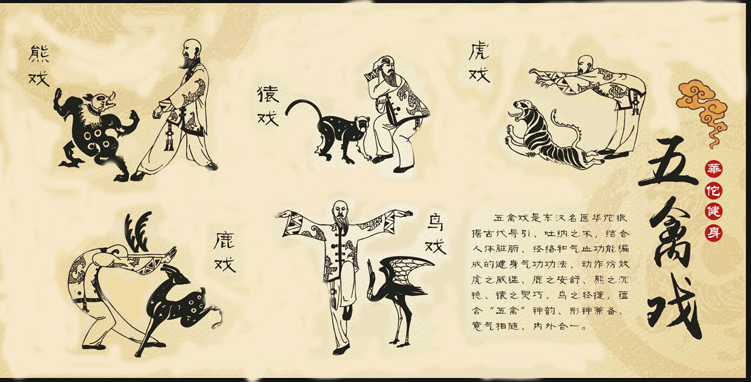 熊戏
猿戏
虎戏
鹿戏
鸟戏
五禽戏
華佗健身
五禽戏是东汉名医华佗根
据古代导引、吐纳之术，结合
人体脏腑、经络和气血功能编
成的健身气功功法，动作仿效
虎之威猛、鹿之安舒、熊之沉
稳、猿之灵巧、鸟之轻捷，蕴
含“五禽”神韵、形神兼备、
意气相随、内外合一。